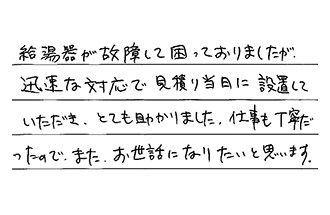 給湯器が故障して困っておりましたが、
迅速な対応で見積り当日に設置して
いただき、とても助かりました。仕事も丁寧だ
ったので、また、お世話になりたいと思います。